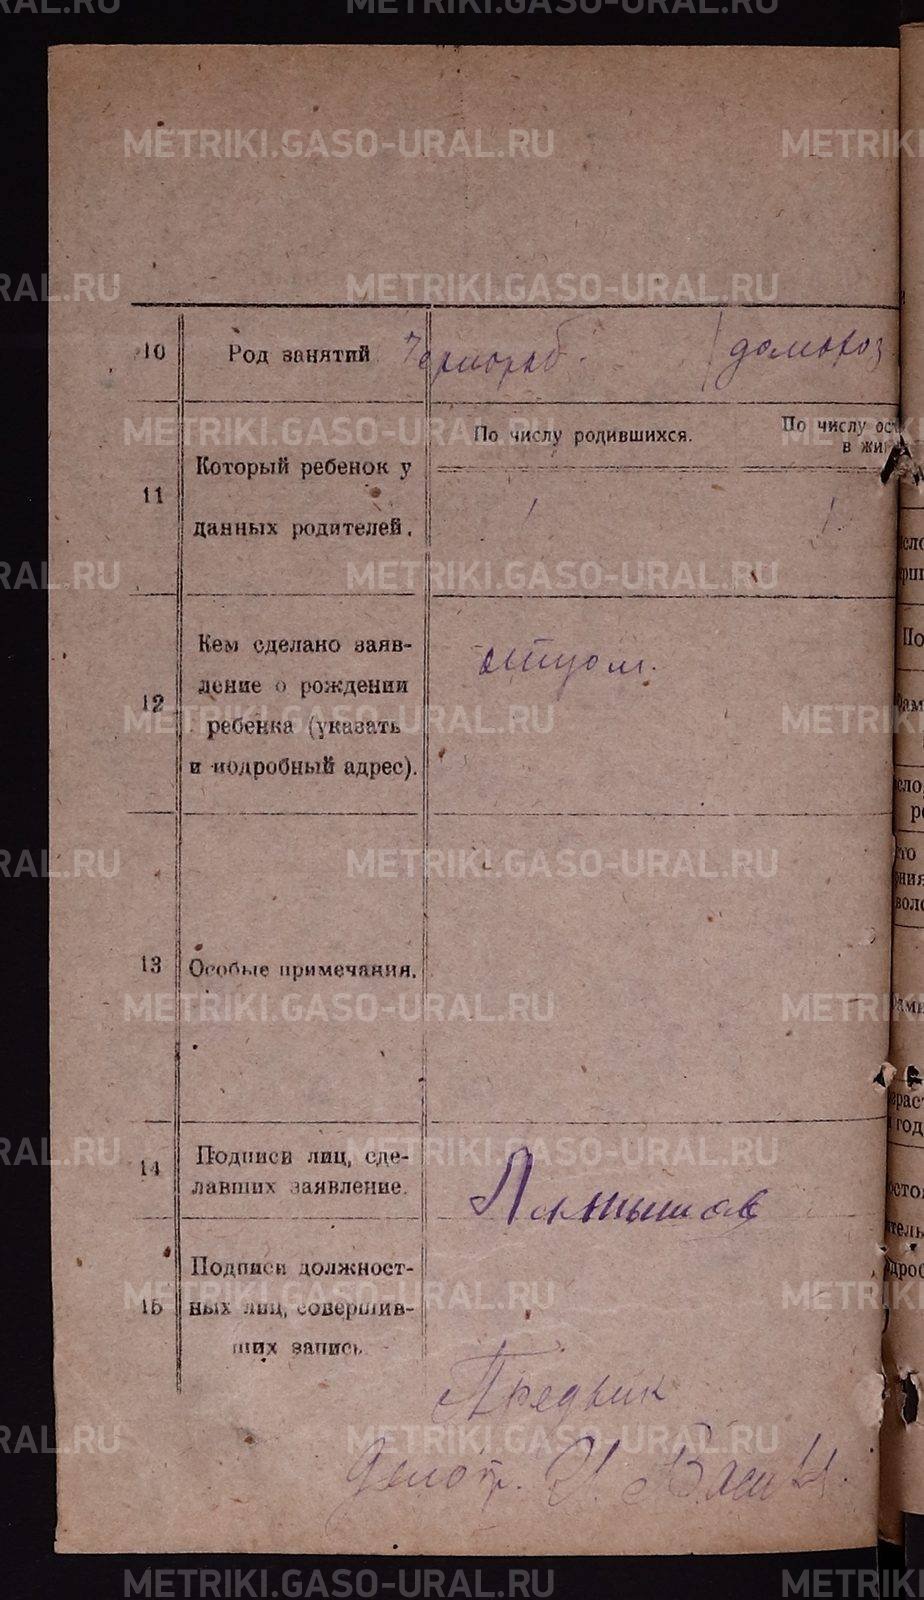 METRIKI.GASO-URAL.RU
10 Род занятий Чернораб. домохоз
11 Который ребенок у данных родителей.
По числу родившихся.
По числу ост
в жи
1 1
12 Кем сделано заяв-
ление о рождении
ребенка (указать
и подробный адрес).
отцом.
13 Особые примечания.
14 Подписи лиц, сде-
лавших заявление.
15 Подписи должност-
ных лиц, совершив-
ших запись
Делопр.